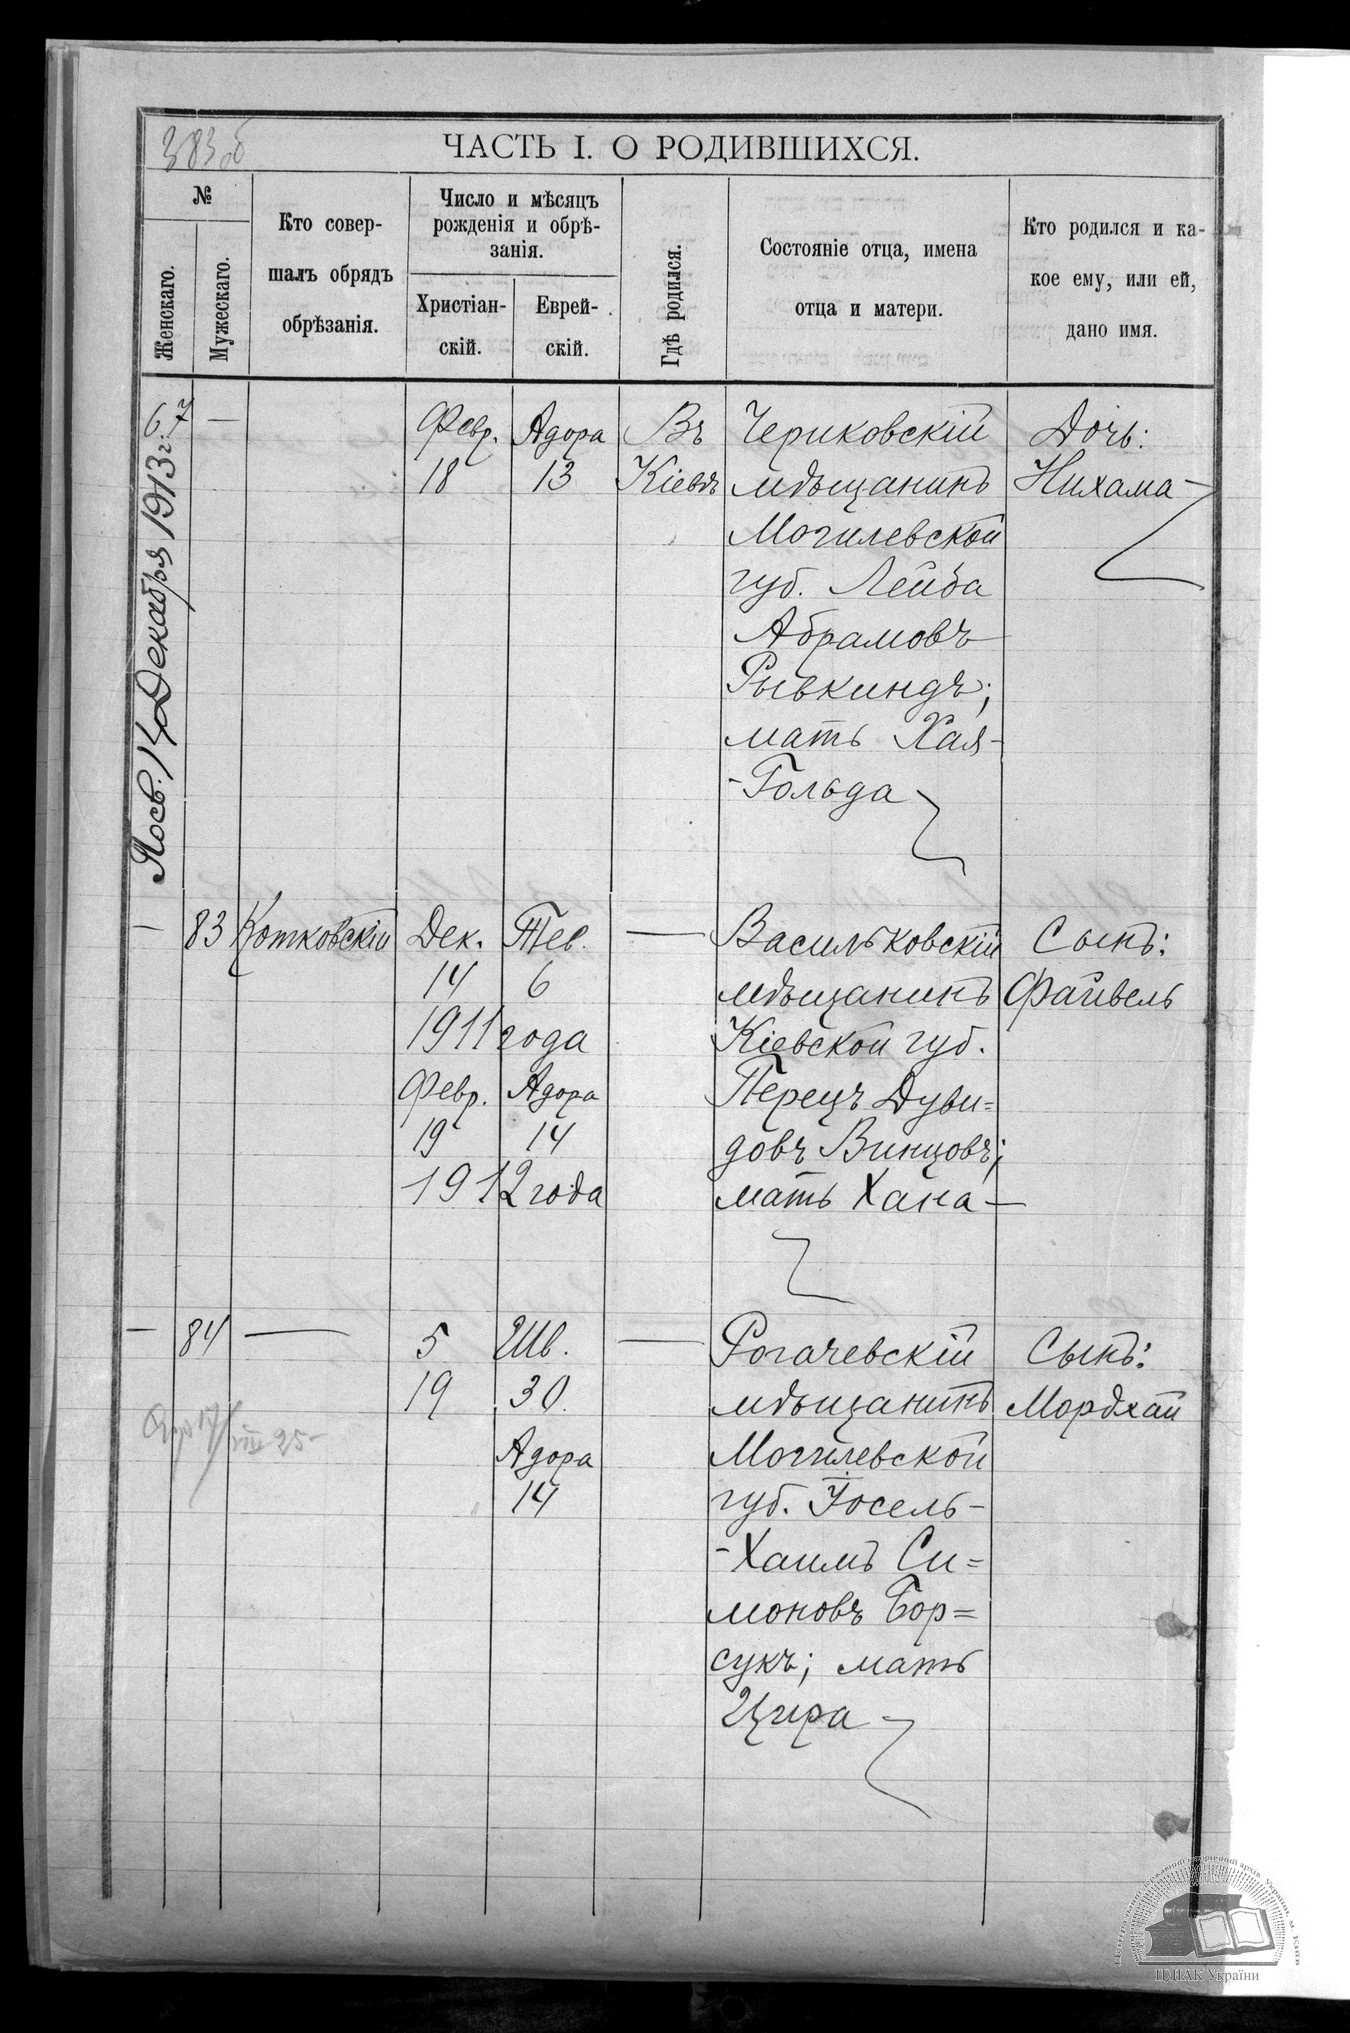 383 об
ЧАСТЬ I. О РОДИВШИХСЯ.
№
Женскаго.
Мужескаго.
Кто совер-
шалъ обрядъ
обрѣзанія.
Число и мѣсяцъ
рожденія и обрѣ-
занія.
Христіан-
скій.
Еврей-
скій.
Гдѣ родился.
Состояніе отца, имена
отца и матери.
Кто родился и ка-
кое ему, или ей,
дано имя.
67 —
Февр.
18
Адора
13
Въ
Кіевѣ
Чериковскій
мѣщанинъ
Могилевской
губ. Лейба
Абрамовъ
Рывкиндъ;
мать Хая-
-Гольда
Дочь:
Нихама
Декабря 1913 г.
— 83
Котковскій
Дек. Тев.
14 6
1911 года
Февр. Адора
19 14
1912 года
—
Васильковскій
мѣщанинъ
Кіевской губ.
Перецъ Дуви=
довъ Винцовъ;
мать Хана —
Сынъ:
Файвель
— 84
—
5
19
Шв.
30
Адора
14
—
Рогачевскій
мѣщанинъ
Могилевской
губ. Іосель-
-Хаимъ Си=
моновъ Бор=
сукъ; мать
Цира
Сынъ:
Мордхай
ЦДІАК України